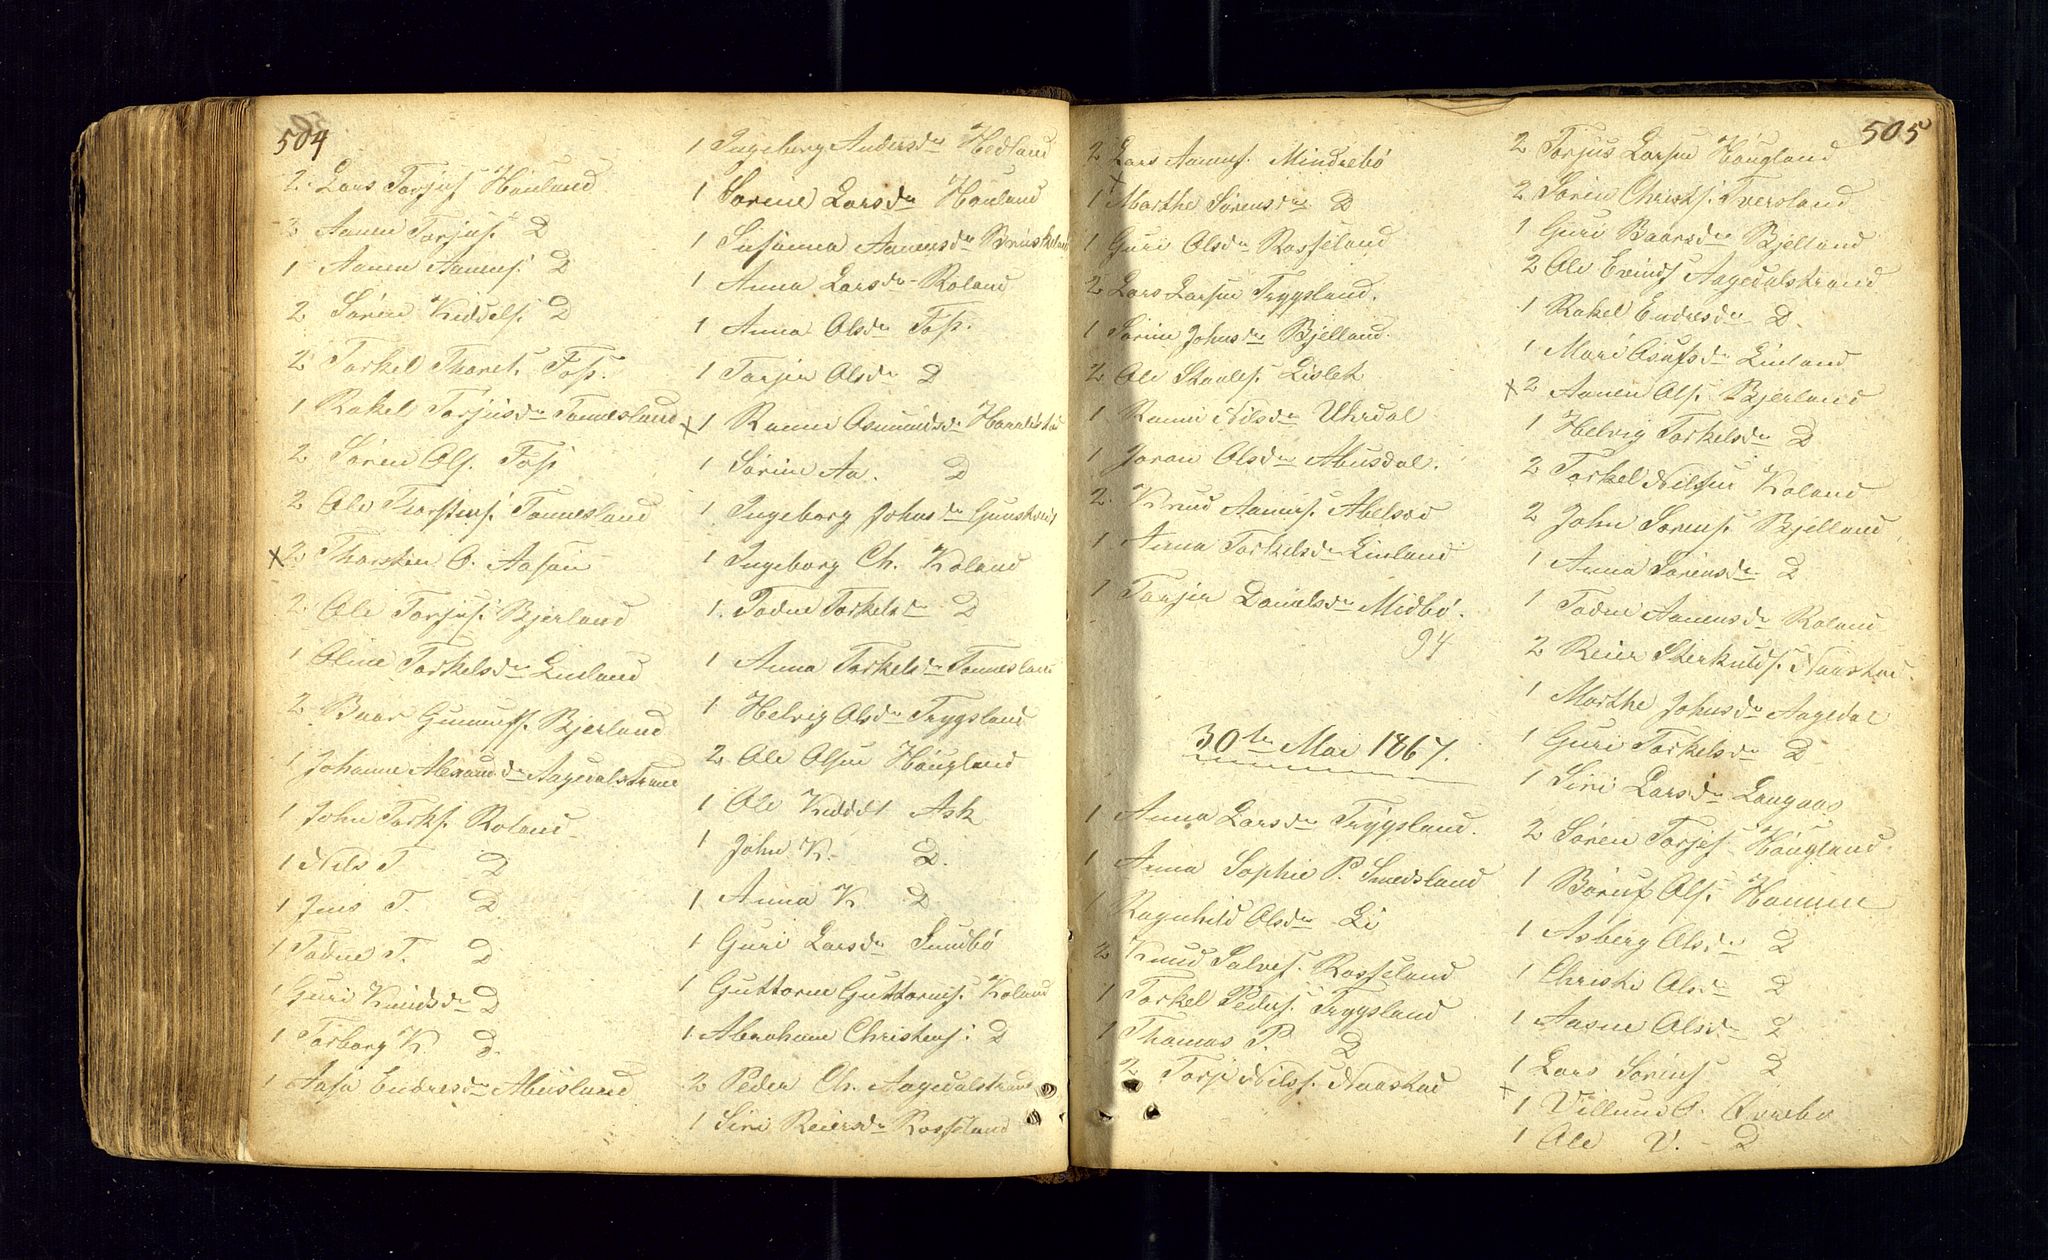 504
2 Lars Torjus. Hönland
3 Aanen Torjus. D
1 Aanen Aanens. D
2 Søren Kiddels. D
2 Torkel Thores. Foss.
1 Rakel Torjusdr Tonnesland
2 Søren Ols. Foss
2 Ole Thorstens. Tonnesland
x 2 Thorsten O. Aasan
2 Ole Torjus. Bjerland
1 Oline Torkelsdr Linland
2 Baar Gunnufs. Bjerland
1 Johanne Alexandr Aagedalstrand
1 John Torks. Roland
1 Nils T. D
1 Jens T. D
1 Todne T. D
1 Guri Knudsdr D
1 Torborg K. D.
1 Aasa Endresdr Abusland
1 Ingeberg Andersdr Hedland
1 Sørine Larsdr Hönland
1 Susanna Aanensdr
1 Anna Larsdr Roland
1 Anna Olsdr Foss.
1 Torjer Olsdr D
x 1 Ranne Asmundsdr
1 Sørine Aa. D
1 Ingeborg Johnsdr
1 Ingeborg Ch. Koland
1. Todne Torkelsdr D
1 Anna Torkelsdr Tonnesland
1 Helvig Olsdr Trygsland
2 Ole Olsen Høugland
1 Ole Kiddels Ask
1 John K. D.
1 Anna K D
1 Guri Larsdr Sundbø
1 Guttorm Guttorms. Koland
1 Abraham Christens. D
2 Peder Ch. Aagedalstrand
1 Siri Reiersdr Rosseland
505
2 Lars Aanens. Mindrebø
x 1 Marthe Sørensdr D
1 Guri Olsdr Rosseland
2 Lars Larsen Trygsland.
1 Sørine Johnsdr Bjelland.
2 Ole Staales. Lislek
1 Ranne Nilsdr Uhrdal
1 Joran Olsdr Abusdal.
2. Knud Aanens. Abelsæd
1. Anna Torkelsdr Linland
1 Torjer Danielsdr Midbø.
94
30te Mai 1867.
1 Anna Larsdr Trygsland.
1 Anna Sophie P. Smedsland
1 Ragnhild Olsdr Li
2 Knud Salves. Rosseland
1 Torkel Peders. Trygsland
1 Thomas P. D
2 Torje Nilss. Naastad
2 Torjus Larsen Høugland
2 Søren Christs. Tversland
1 Guri Baarsdr Bjelland
2 Ole Evinds Aagedalstrand
1 Rakel Endresdr D.
1 Mari Osufsdr Linland
x 2 Aanen Ols. Bjerland
1 Helvig Torkelsdr D
2 Torkel Nilsen Koland
2 John Sørens. Bjelland
1 Anna Sørensdr D
1 Todne Aanensdr Roland
2 Reier Sterkulds. Naastad.
1 Marthe Johnsdr Aagedal
1 Guri Torkelsdr D
1 Siri Larsdr Langaas
2 Søren Torjes. Høugland.
1 Børuf Ols. Homme
1 Asberg Olsdr D
1 Christi Olsdr D
1 Aasne Olsdr D
1 Lars Sørens D
x 1 Villum O. Øvrebø
1 Ole V. D